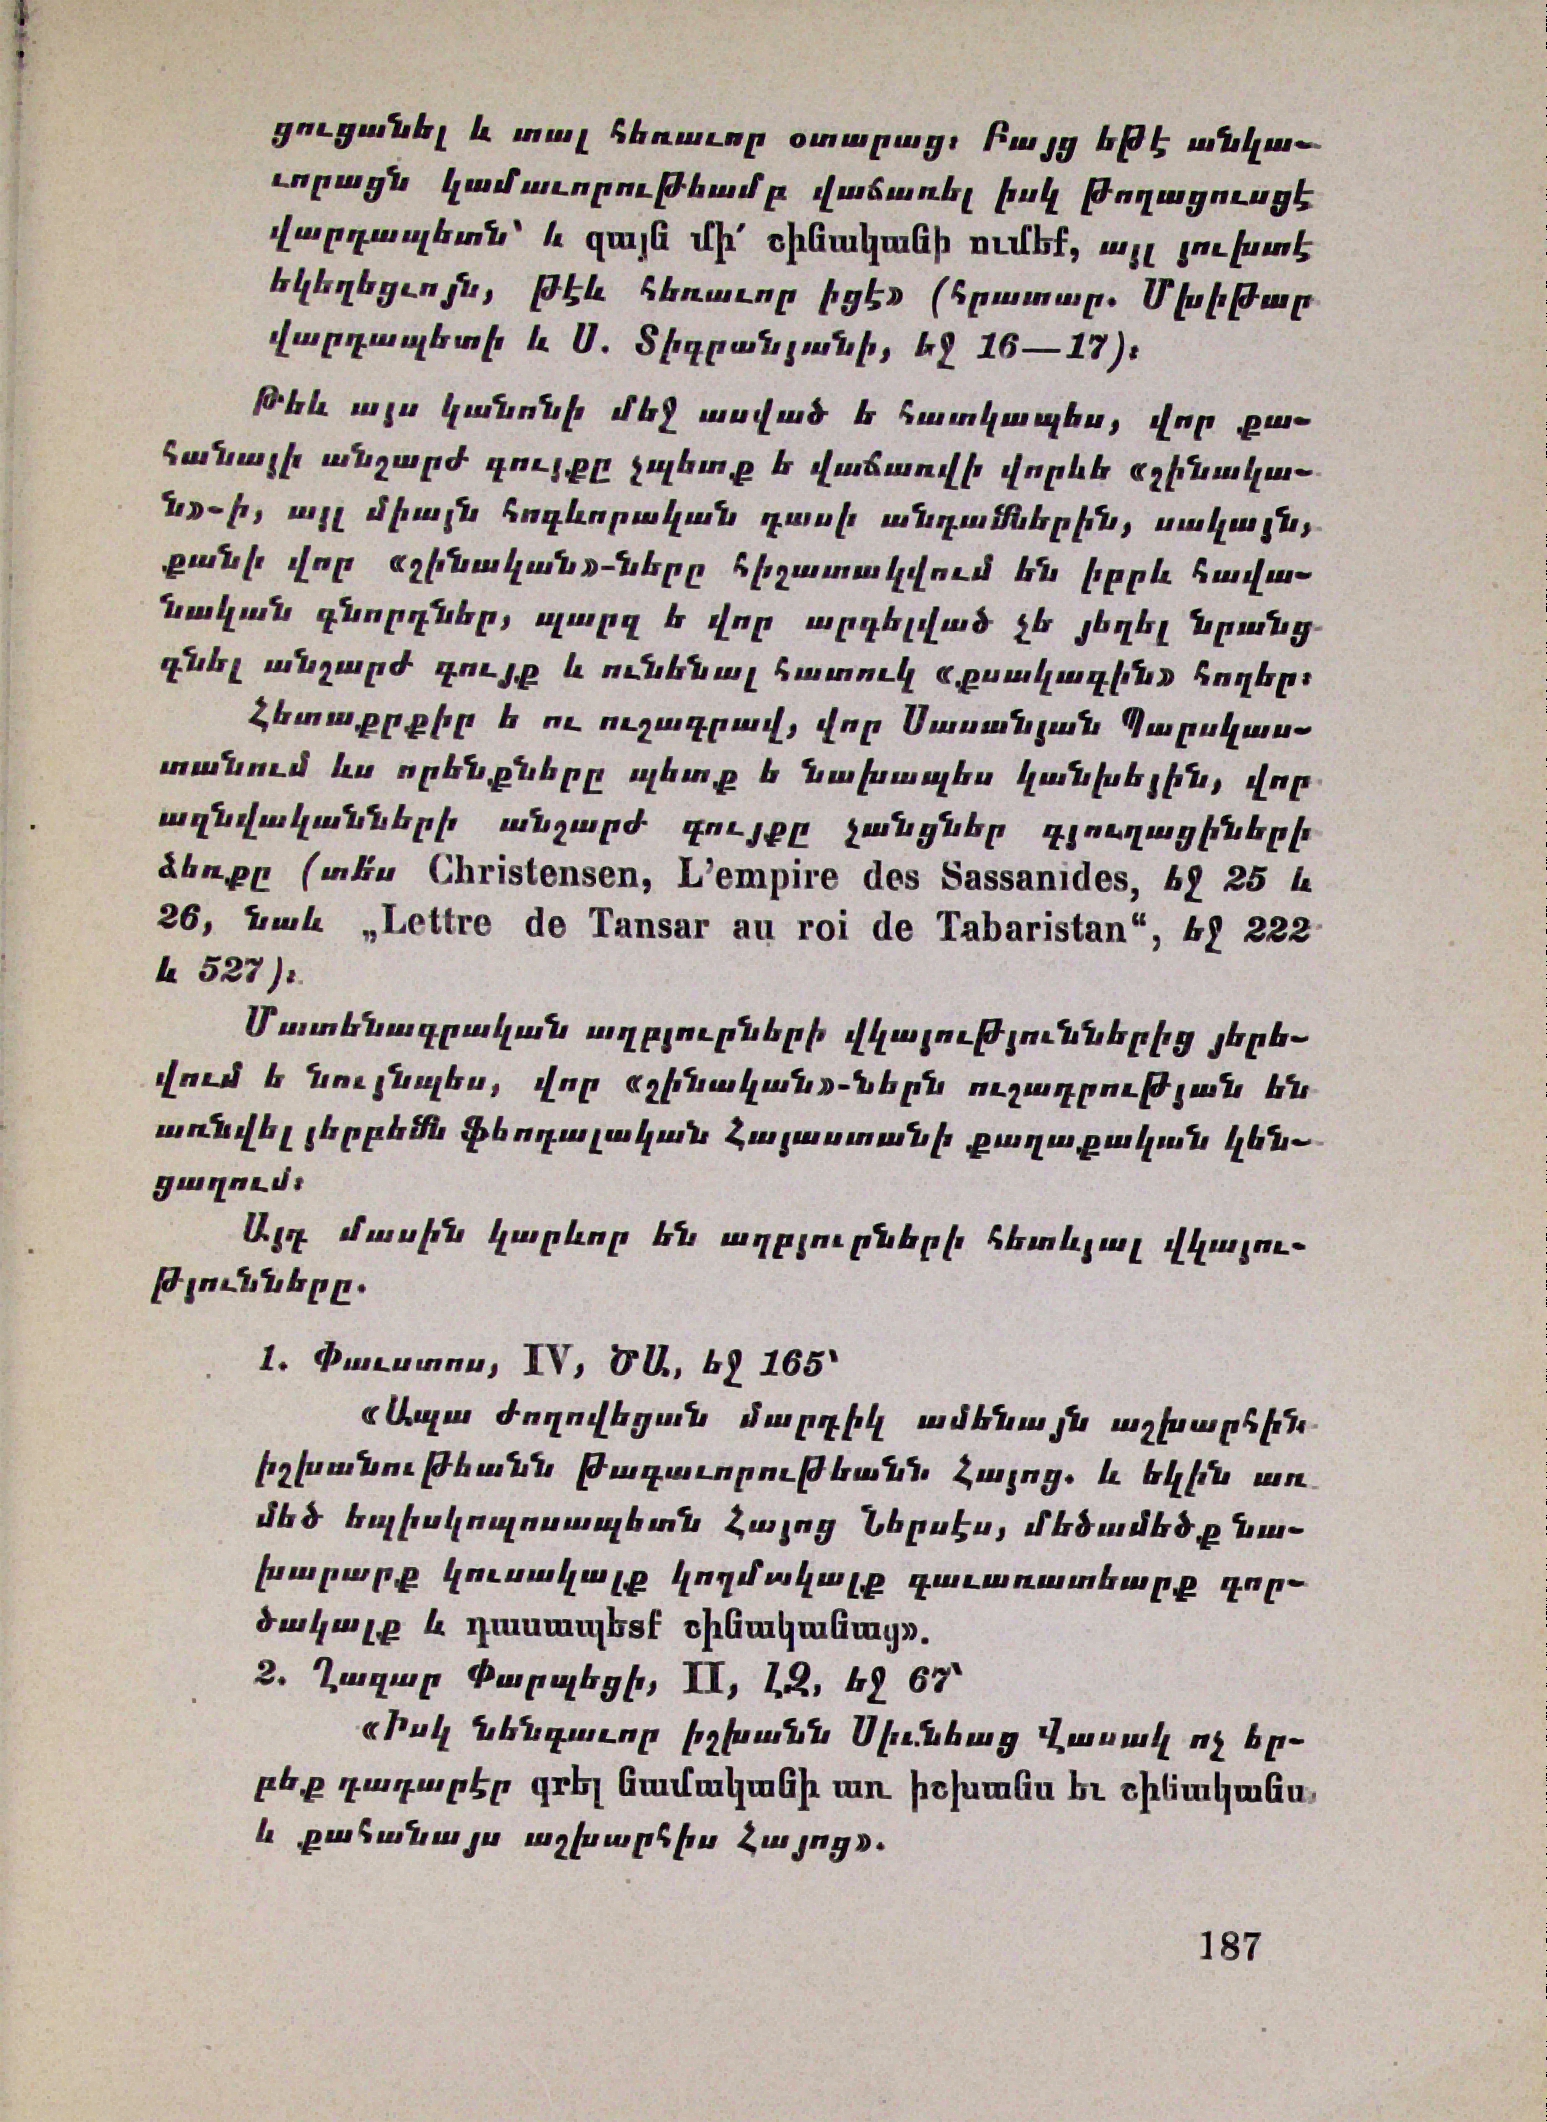 ցուցանել և տալ հեռաւոր օտարաց։ Բայց եթէ անկա-
ւորացն կամաւորութեամբ վաճառել իսկ թողացուսցէ
վարդապետն՝ և զայն մի՛ շինականի ումեք, այլ յուխտէ
եկեղեցւոյն, թէև հեռաւոր իցէ» (հրատար. Մխիթար
վարդապետի և Ս. Տիգրանյանի, եջ 16—17)։
Թեև այս կանոնի մեջ ասված ե հատկապես, վոր քա-
հանայի անշարժ գույքը չպետք ե վաճառվի վորևե «շինակա-
ն»-ի, այլ միայն հոգևորական դասի անդամներին, սակայն,
քանի վոր «շինական»-ները հիշատակվում են իբրև հավա-
նական գնորդներ, պարզ ե վոր արդելված չե յեղել նրանց
գնել անշարժ գույք և ունենալ հատուկ «քսակագին» հողեր։
Հետաքրքիր ե ու ուշագրավ, վոր Սասանյան Պարսկաս-
տանում ևս որենքները պետք ե նախապես կանխեյին, վոր
ազնվականների անշարժ գույքը չանցներ գյուղացիների
ձեռքը (տե՛ս Christensen, L’empire des Sassanides, եջ 25 և
26, նաև „Lettre de Tansar au roi de Tabaristan“, եջ 222
և 527)։
Մատենագրական աղբյուրների վկայություններից յերե-
վում ե նույնպես, վոր «շինական»-ներն ուշադրության են
առնվել յերբեմն ֆեոդալական Հայաստանի քաղաքական կեն-
ցաղում։
Այդ մասին կարևոր են աղբյուրների հետևյալ վկայու-
թյունները.
1. Փաւստոս, IV, ԾԱ, եջ 165՝
«Ապա ժողովեցան մարդիկ ամենայն աշխարհին
իշխանութեանն թագաւորութեանն Հայոց. և եկին առ
մեծ եպիսկոպոսապետն Հայոց Ներսէս, մեծամեծք նա-
խարարք կուսակալք կողմակալք գաւառատեարք գոր-
ծակալք և դասապետք շինականաց».
2. Ղազար Փարպեցի, II, ԼԶ, եջ 67՝
«Իսկ նենգաւոր իշխանն Սիւնեաց Վասակ ոչ եր-
բեք դադարէր գրել նամականի առ իշխանս եւ շինականս
և քահանայս աշխարհիս Հայոց».
187